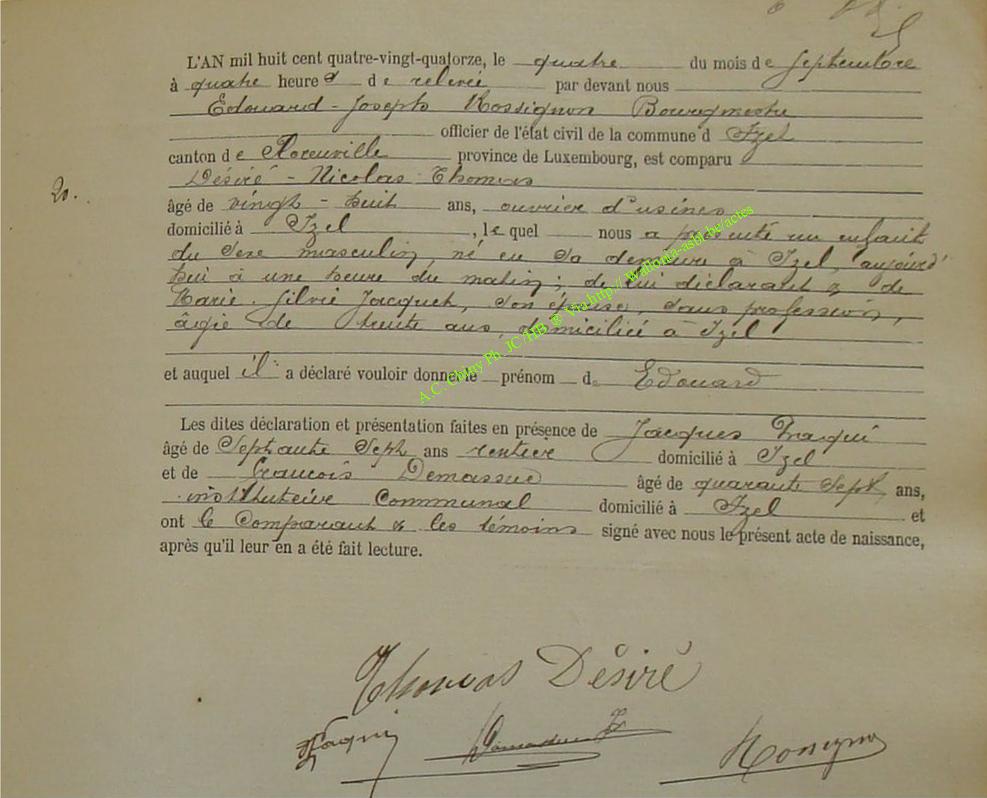 L'AN mil huit cent quatre-vingt-quatorze, le quatre du mois de Septembre
à quatre heures de relevée par devant nous
Edouard-Joseph Rossignon Bourgmestre
officier de l'état civil de la commune d'Izel
canton de Florenville province de Luxembourg, est comparu
Désiré-Nicolas Thomas
20. âgé de vingt-huit ans, ouvrier d'usines
domicilié à Izel, lequel nous a présenté un enfant
du sexe masculin, né en sa demeure à Izel, aujourd'
hui à une heure du matin; de lui déclarant & de
Marie-Silvie Jacquet, son épouse, sans profession,
âgée de trente ans, domiciliée à Izel
et auquel il a déclaré vouloir donner le prénom de Edouard
Les dites déclaration et présentation faites en présence de Jacques
âgé de Septante Sept ans rentier domicilié à Izel
et de François âgé de quarante Sept ans,
instituteur Communal domicilié à Izel et
ont le Comparant & les témoins signé avec nous le présent acte de naissance,
après qu'il leur en a été fait lecture.
A.C. Chiny Ph. JC/HB @ Via http://Wallonia-asbl.be/actes
Thomas Désiré